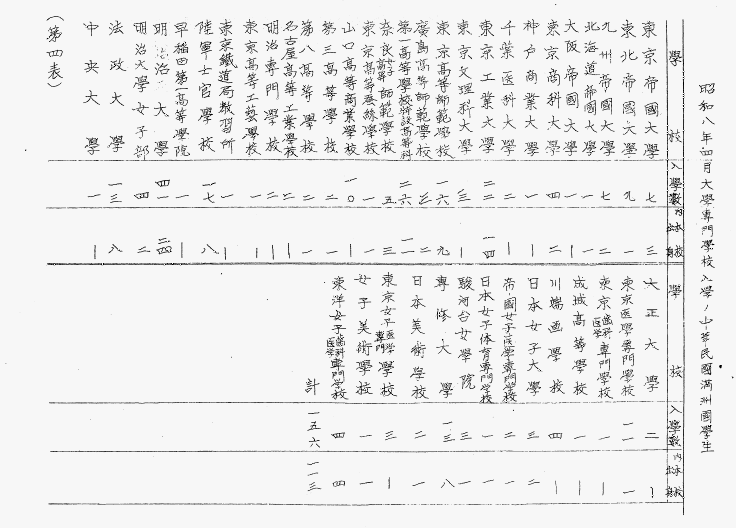 昭和八年四月大學專門學校入學ノ中華民國満洲國學生
學校 入學數 內本校出身
東京帝國大學 七 三
東北帝國大學 九 一
九州帝國大學 七 二
北海道帝國大學 一 一
大阪帝國大學 一 |
東京商業大學 四 二
神戸商業大學 一 一
千葉医科大學 二 |
東京工業大學 二二 一四
東京文理科大學 三 二
東京高等師範學校 一六 九
廣島高等師範學校 三 二
第一高等學校特設高等科 二六 一一
奈良女子高等師範學校 五 三
東京高等蚕絲學校 一 一
山口高等商業學校 一〇 |
第三高等學校 一 一
第八高等學校 一 一
名古屋高等工業學校 二 |
明治專門學校 二 二
東京高等工藝學校 一 |
東京鐵道局教習所 一 |
陸軍士官學校 一七 八
早稲田第一高等學院 一 |
明治大學 四一 二四
明治大學女子部 四 二
法政大學 一三 八
中央大學 一 |
(第四表)
學校 入學數 內本校出身
大正大學 二 |
東京医學專門學校 一一 一
東京歯科医学專門學校 一 |
成城高等學校 一 |
川端画學校 四 |
日本女子大學 二 |
帝國女子医学專門学校 三 二
日本女子体育專門学校 一 |
駿河台女學院 三 一
專修大學 一三 八
日本美術學校 二 一
東京女子医学專門學校 三 |
女子美術學校 一 一
東洋女子歯科医学專門学校 四 四
計 一五六 一一三